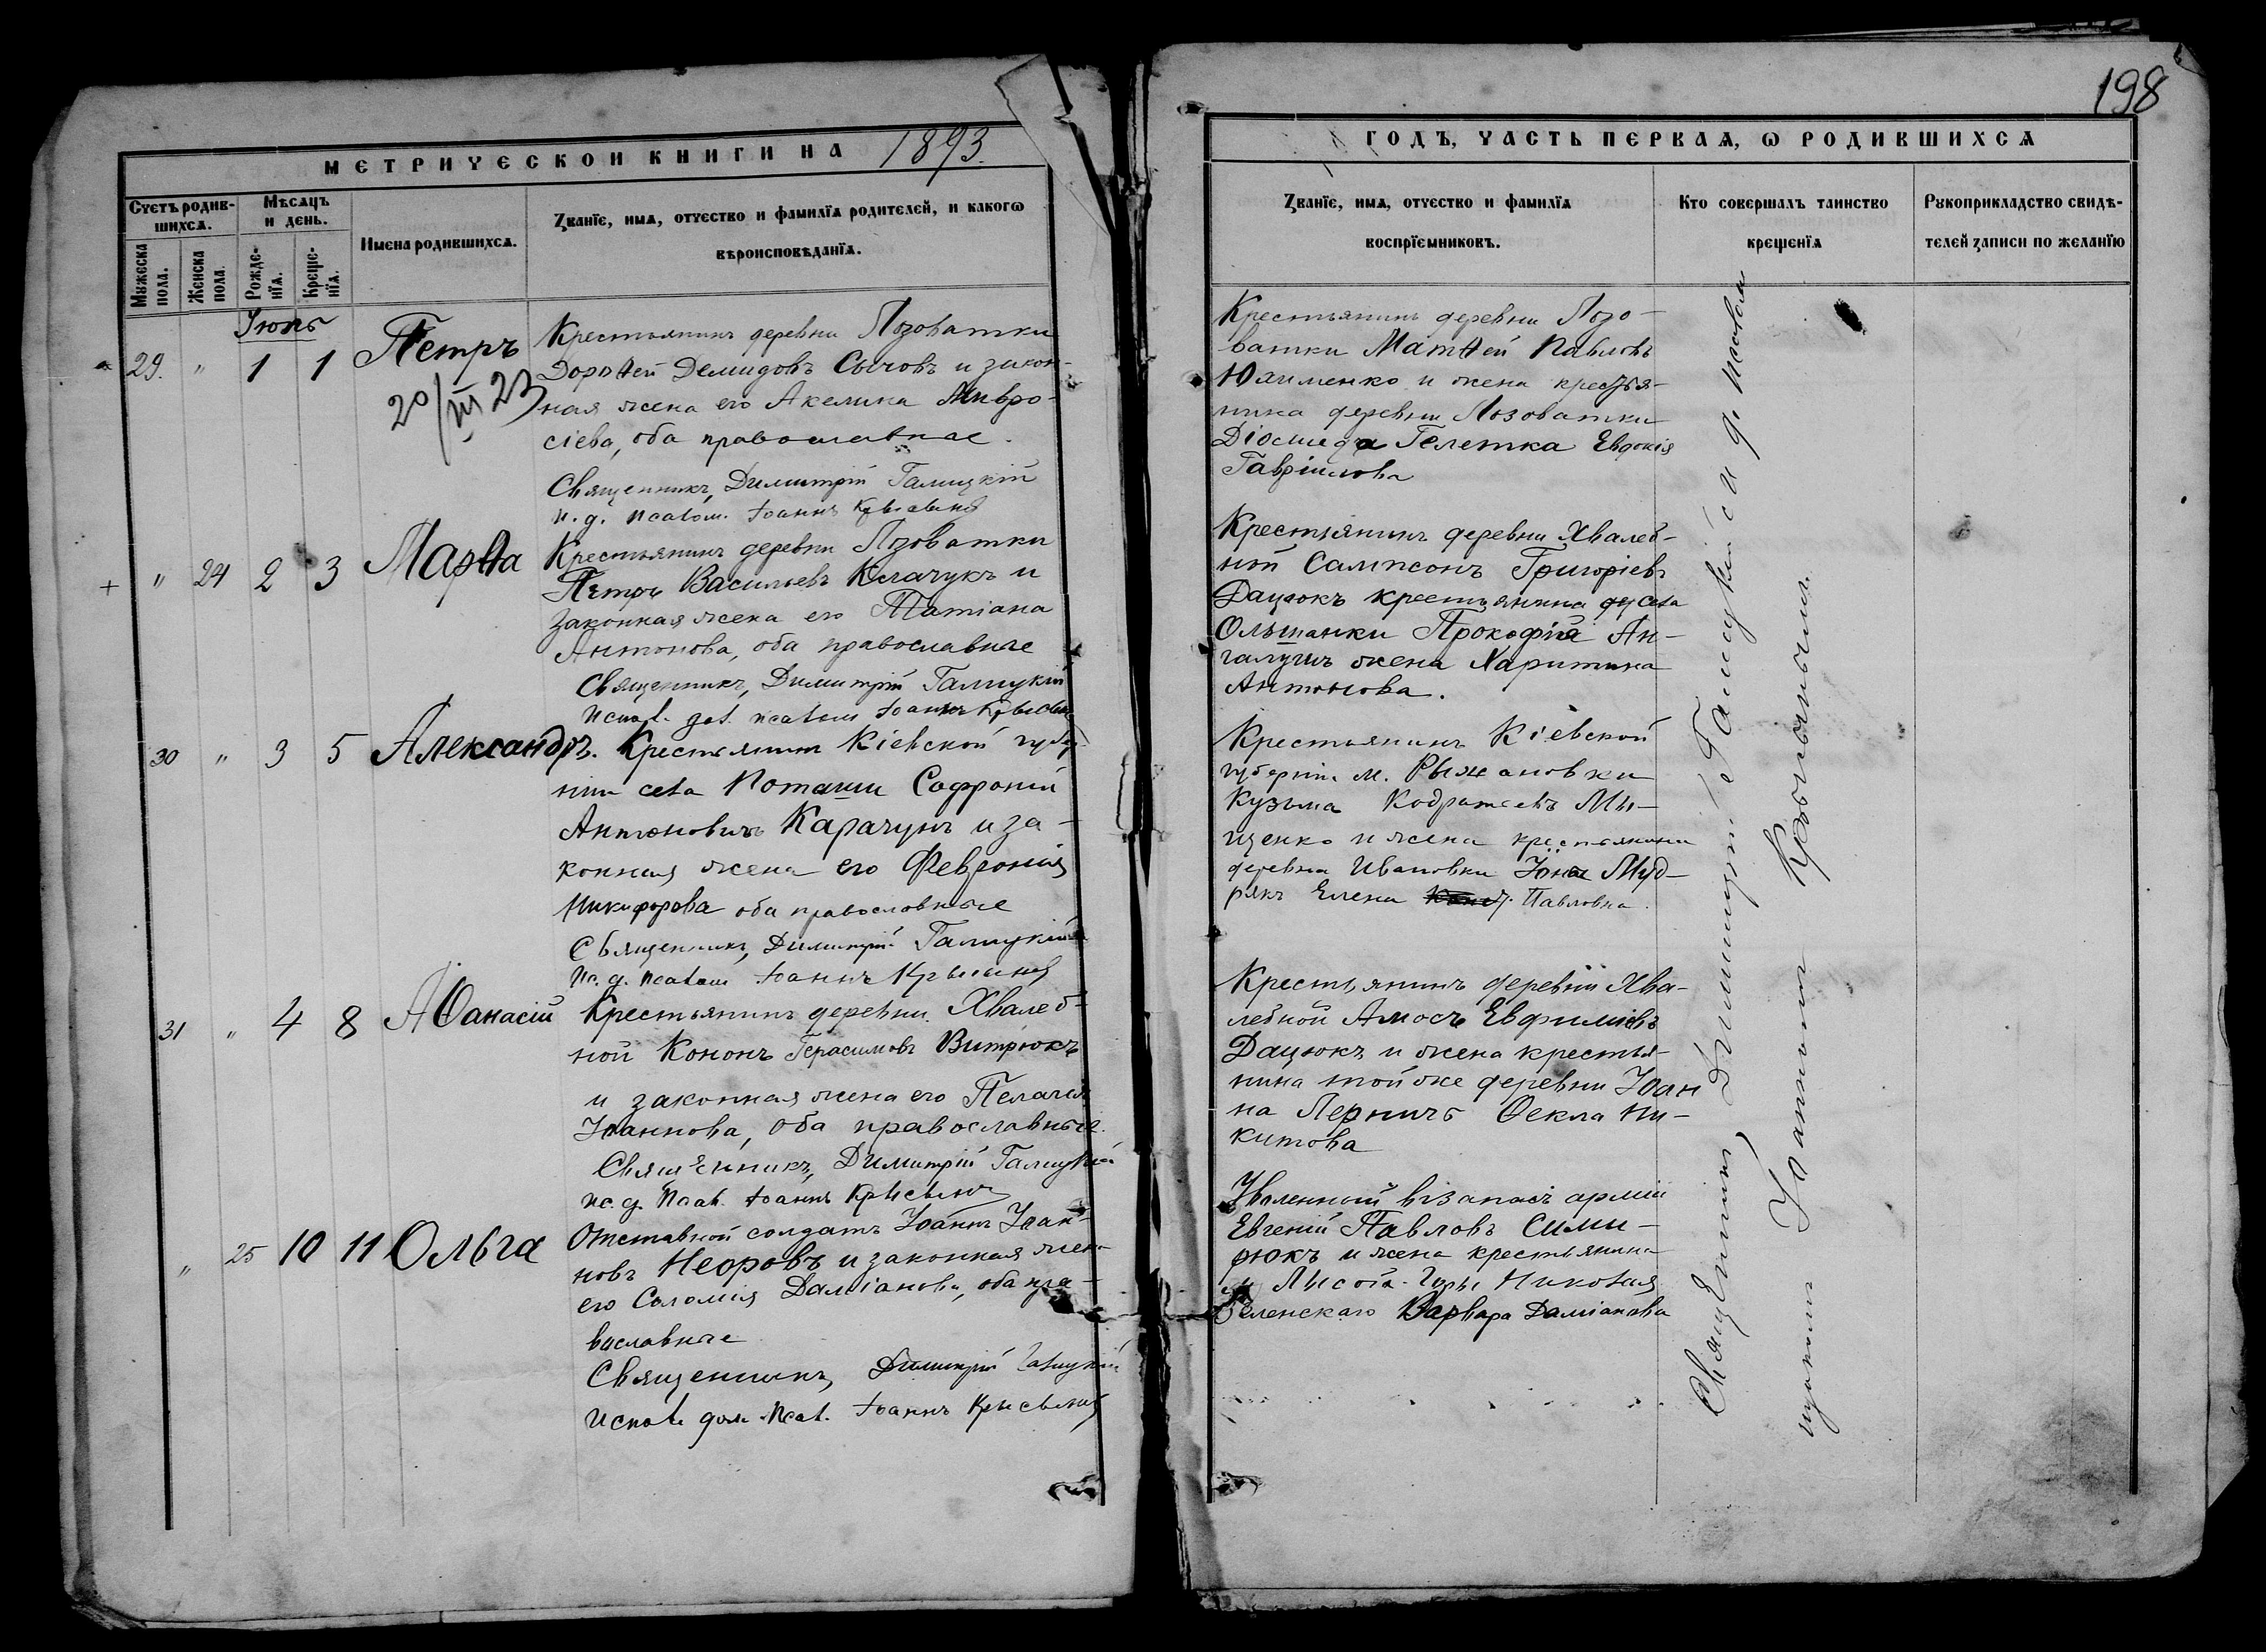 198
МЕТРИЧЕСКОЙ КНИГИ НА 1893.
ГОДЪ, ЧАСТЬ ПЕРВАЯ, Ѡ РОДИВШИХСЯ
Счетъ родив-
шихся.
Мужеска
пола.
Женска
пола.
Мѣсяцъ
и день.
Рожде-
нїя.
Креще-
нїя.
Имена родившихся.
Званїе, имя, отчество и фамилїя родителей, и какогѡ
вѣроисповѣданїя.
Званїе, имя, отчество и фамилїя
воспрїемниковъ.
Кто совершалъ таинство
крещенїя
Рукоприкладство свидѣ-
телей записи по желанїю
Іюнь
29. " 1 1 Петръ
20/III 23
Крестьянинъ деревни Лозоватки
Дороѳей Демидовъ Сычовъ и закон-
ная жена его Акелина Амвро-
сіева, оба православные.
Священникъ, Димитрій Галицкій
и. д. псалом. Іоаннъ
Крестьянинъ деревни Лозо-
ватки Матѳей Павловъ
Юхименко и жена крестья-
нина деревни Лозоватки
Діомида Гелетка Евдокія
Гавріилова
+ " 24 2 3 Марѳа
Крестьянинъ деревни Лозоватки
Петръ Васильевъ Клачукъ и
законная жена его Татіана
Антонова, оба православные
Священникъ, Димитрій Галицкій
псалом Іоаннъ
Крестьянинъ деревни Хвалеб-
ной Сампсонъ Григоріевъ
Дацюкъ крестьянина села
Ольшанки Прокофія Ан-
жена Харитина
Антонова.
30 " 3 5 Александръ.
Крестьянинъ Кіевской губер-
ніи села Поташи Софроній
Антоновичъ Карачунъ и за-
конная жена его Февронія
Никифорова оба православные
Священникъ, Димитрій Галицкій
ис. д. псалом Іоаннъ
Крестьянинъ Кіевской
губерніи м. Рыжановки
Кузьма Мы-
щенко и жена крестьянина
деревни Ивановки Іона Муд-
рякъ Елена Павловна.
31 " 4 8 Аѳанасій
Крестьянинъ деревни Хвалеб-
ной Кононъ Герасимовъ Витрюкъ
и законная жена его Пелагія
Іоаннова, оба православные.
Священникъ, Димитрій Галицкій
ис. д. Псал. Іоаннъ
Крестьянинъ деревни Хва-
лебной Амосъ Евфиміевъ
Дацюкъ и жена крестья-
нина той же деревни Іоан
на Ѳекла Ни-
китова
" 25 10 11 Ольга
Отставной солдатъ Іоаннъ Іоан-
новъ и законная жена
его Саломія Даміанова, оба пра-
вославные
Священникъ, Димитрій Галицкій
Псал. Іоаннъ
Уволенный въ запасъ арміи
Евгеній Павловъ Сими-
рюкъ и жена крестьянина
м Лысой-Горы Николая
Зеленскаго Варвара Даміанова
Священникъ, Димитрій Галицкій и д. псалом
щикъ Іоаннъ